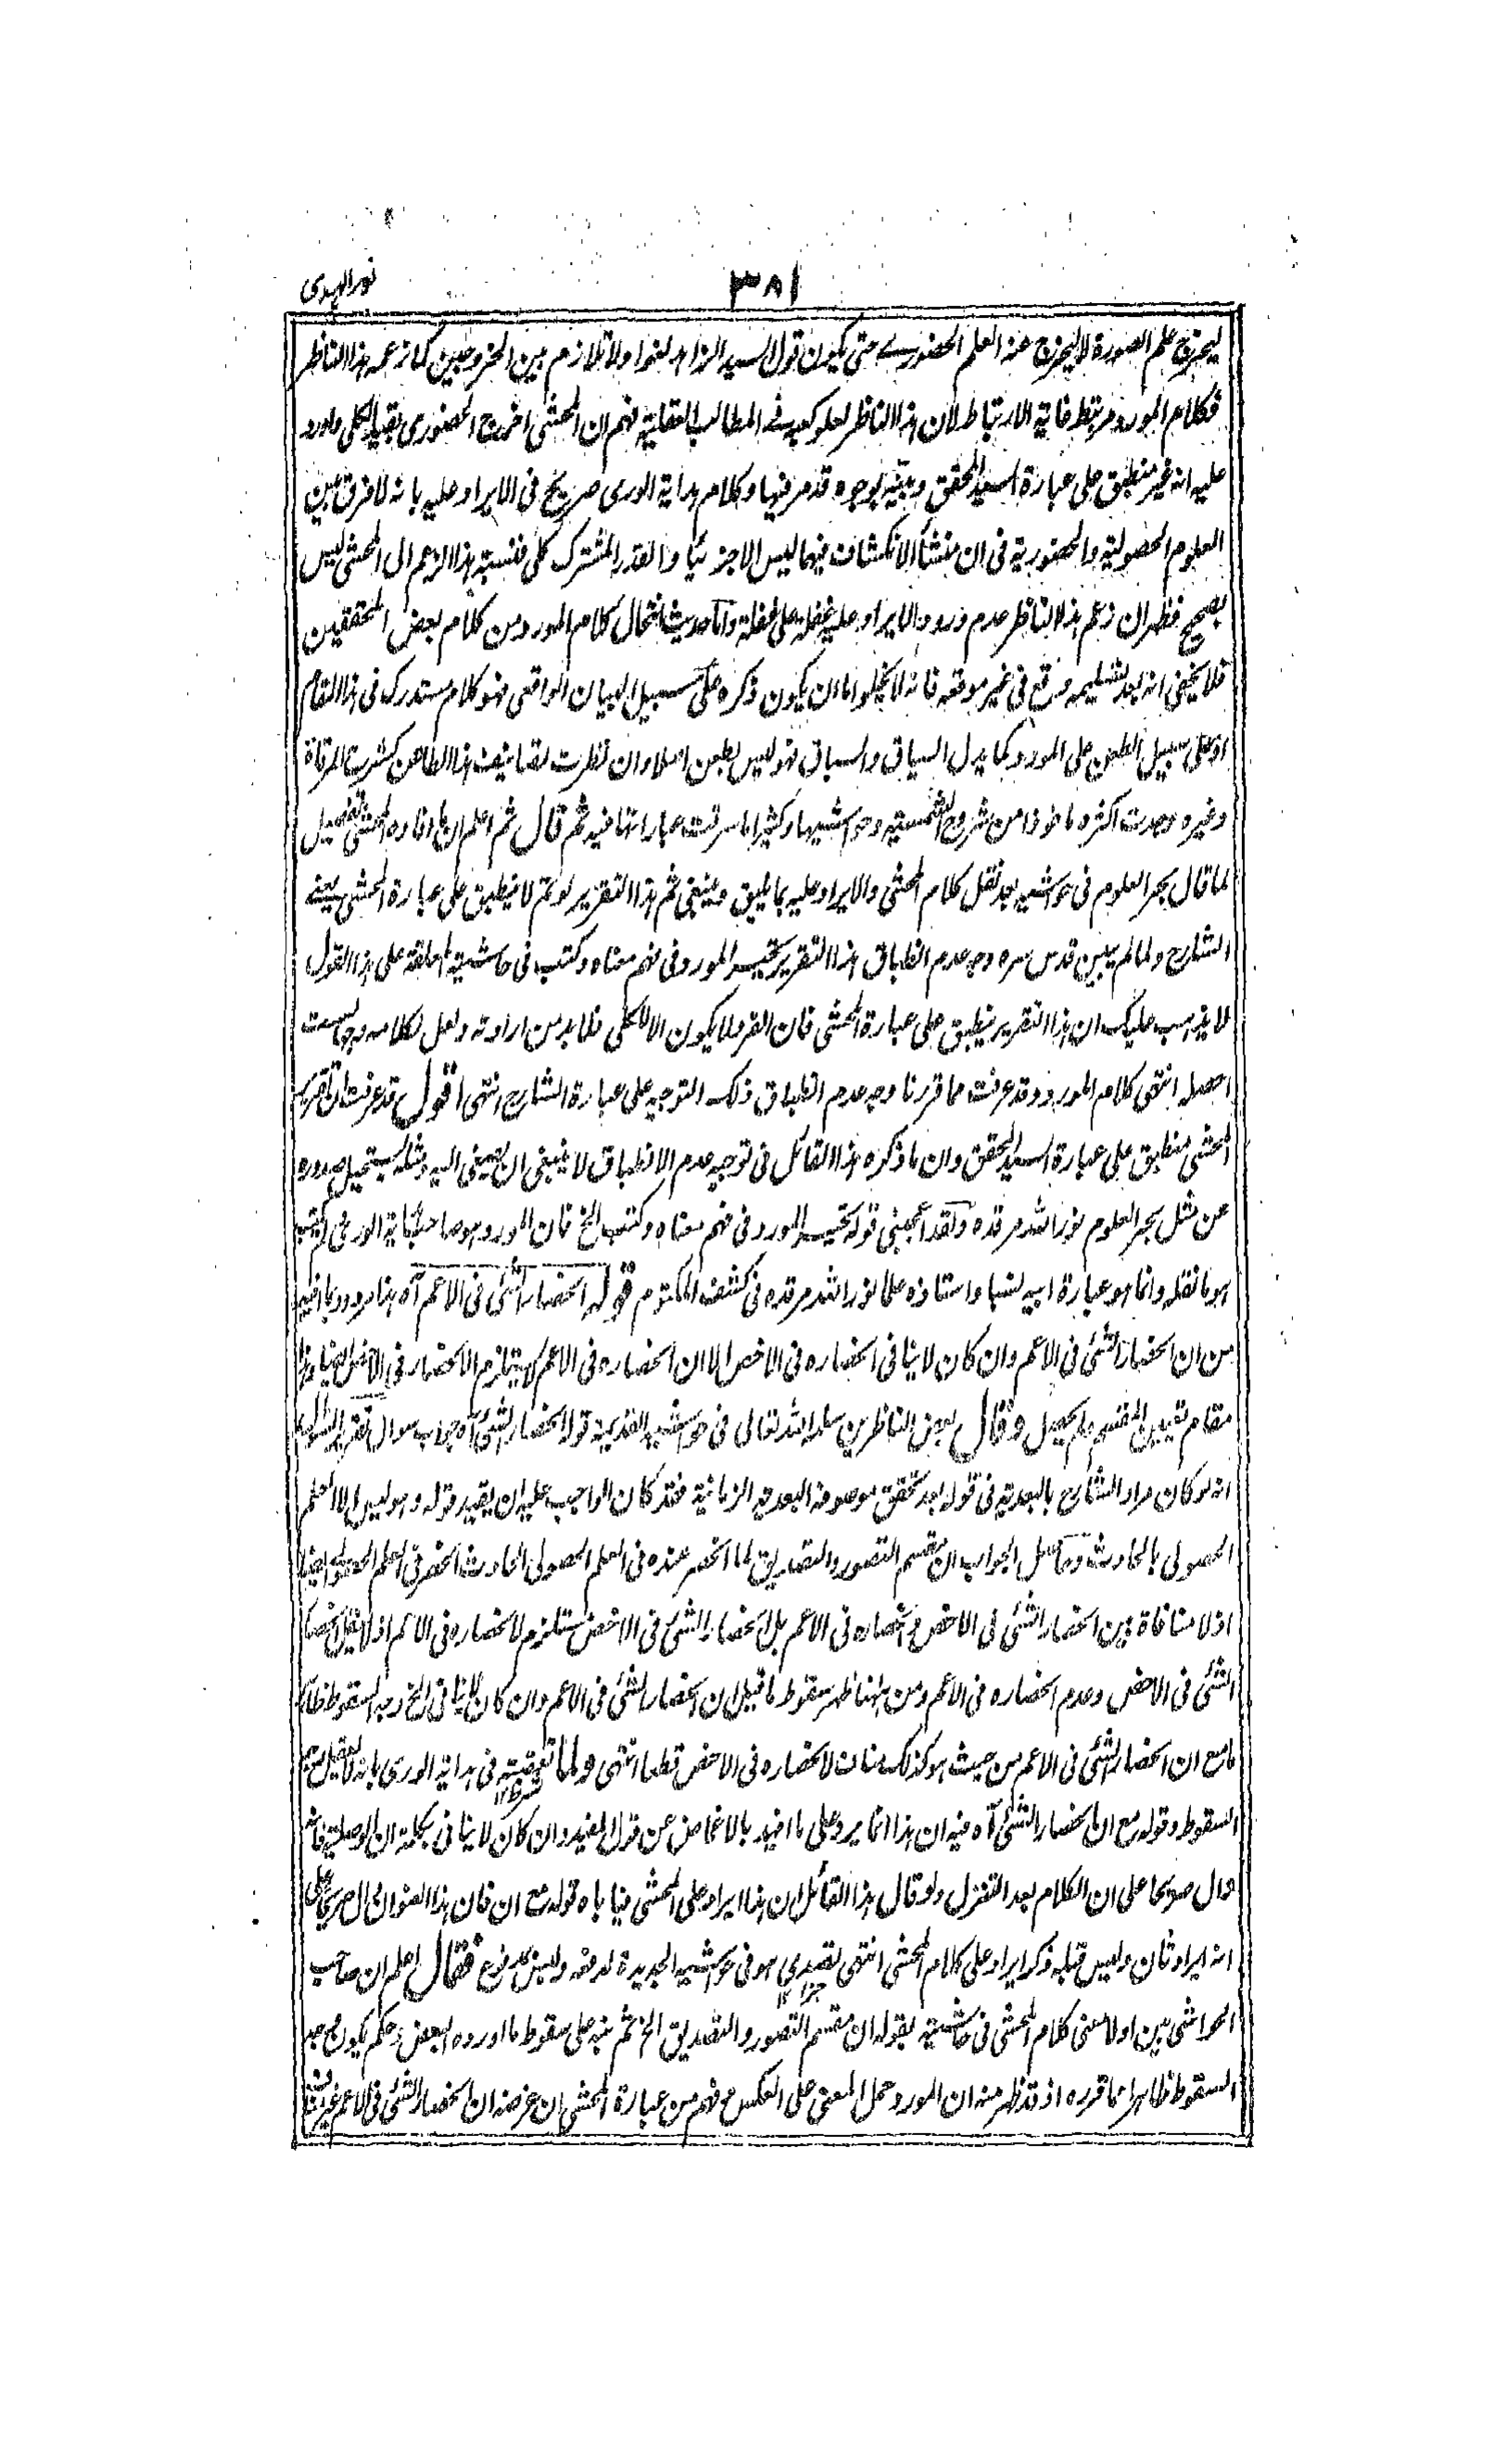 نور الهدى
٣٨١
ليخرج علم الصورة لا ليخرج عنه العلم الحضورى حتى يكون قول السيد الزاهد لغوا ولا تلازم بين الخروجين كما زعمه هذا الناظر
فكلام المورد مرتبط غاية الارتباط لان هذا الناظر لعلو كعبه فى المطالب العقلية فهم ان المحشى اخرج الحضورى بقيد الكلى واورد
عليه انه غير منطبق على عبارة السيد المحقق وبينه بوجوه قد مر فيها وكلام هداية الورى صريح فى الايراد عليه بانه لا فرق بين
العلوم الحصولية والحضورية فى ان منشأ الانكشاف فيهما ليس الا جزئيا والقدر المشترك كلى فنسبة هذا الزعم الى المحشى ليس
بصحيح فظهر ان زعم هذا الناظر عدم ورود الايراد عليه غفلة على غفلة واما حديث انتحال كلام المورد من كلام بعض المحققين
فلا يخفى انه بعد تسليمه وقع فى غير موقعه فانه لا يخلو اما ان يكون ذكره على سبيل البيان الواقعى فهو كلام مستدرك فى هذا المقام
او على سبيل الطعن على المورد كما يدل السياق والسباق فهو ليس بطعن اصلا وان نظرت تصانيف هذا الطاعن كشرح المرقاة
وغيره وجدت اكثره ماخوذا من شروح الشمسية وحواشيها وكثيرا ما سرقت عباراتها فيه ثم قال ثم اعلم ان ما افاده المحشى تفصيل
لما قال بحر العلوم فى حواشيه بعد نقل كلام المحشى والايراد عليه بما يليق وينبغى ثم هذا التقرير لو تم لا ينطبق على عبارة المحشى يعنى
الشارح ولما لم يبين قدس سره وجه عدم انطباق هذا التقرير تحير المورد فى فهم معناه وكتب فى حاشيته المعلقة على هذا القول
لا يذهب عليك ان هذا التقرير ينطبق على عبارة المحشى فان الفرد لا يكون الا للكلى فلا بد من ارادته ولعل لكلامه وجها لست
احصله انتهى كلام المورد وقد عرفت مما قررنا وجه عدم انطباق ذلك التوجيه على عبارة الشارح انتهى اقول قد عرفت ان تقرير
المحشى منطبق على عبارة السيد المحقق وان ما ذكره هذا القائل فى توجيه عدم الانطباق لا ينبغى ان يصغى اليه ومثله يستحيل صدوره
عن مثل بحر العلوم نور الله مرقده ولقد اعجبنى قوله تحير المورد فى فهم معناه وكتب الخ فان المورد وهو صاحب هداية الورى لم يكتب
هو ما نقله وانما هو عبارة ابيه نسبا واستاذه علما نور الله مرقده فى كشف المكتوم قوله انحصار الشئ فى الاعم آه هذا مردود بما افيد
من ان انحصار الشئ فى الاعم وان كان لا ينافى انحصاره فى الاخص الا ان انحصاره فى الاعم لا يستلزم الانحصار فى الاخص ايضا وهذا
مقام تعيين المقسم ولم يحصل وقال بعض الناظرين سلمه الله تعالى فى حواشيه القديمة قوله انحصار الشئ آه جواب سوال تقرير السوال
انه لو كان مراد الشارح بالبعدية فى قوله بعد تحقق موصوفه البعدية الزمانية فقد كان الواجب عليه ان يقيد قوله وهو ليس الا العلم
الحصولى بالحادث وحاصل الجواب ان مقسم التصور والتصديق لما انحصر عنده فى العلم الحصولى الحادث انحصر فى العلم الحصولى ايضا
اذ لا منافاة بين انحصار الشئ فى الاخص وانحصاره فى الاعم بل انحصار الشئ فى الاخص مستلزم لانحصاره فى الاعم اذ لا يعقل انحصار
الشئ فى الاخص وعدم انحصاره فى الاعم ومن ههنا ظهر سقوط ما قيل ان انحصار الشئ فى الاعم وان كان لا ينافى الخ وجه السقوط ظاهر
مامع ان انحصار الشئ فى الاعم من حيث هو كذلك مناف لانحصاره فى الاخص قطعا انتهى ولما تعقبته فى هداية الورى بانه لا يعقل وجه
السقوط وقوله مع ان انحصار الشئ آه فيه ان هذا انما يرد على ما افيد بالاغماض عن قول المفيد وان كان لا ينافى بكلمة ان الوصلية فانه
دال صريحا على ان الكلام بعد التنزل ولو قال هذا القائل ان هذا ايراد على المحشى فيا باه قوله مع ان فان هذا العنوان دال صريحا على
انه ايراد ثان وليس قبله ذكر ايراد على كلام المحشى انتهى تصدى هو فى حواشيه الجديدة لدفعه وليس بمدفوع فقال اعلم ان صاحب
الحواشى بين اولا معنى كلام المحشى فى حاشيته بقوله ان مقسم التصور والتصديق الخ ثم نبه على سقوط ما اورده البعض وحكم بكون وجه
السقوط ظاهرا مما قرره اذ قد ظهر منه ان المورد حمل المعنى على العكس وفهم من عبارة المحشى ان غرضه ان انحصار الشئ فى الاعم غير